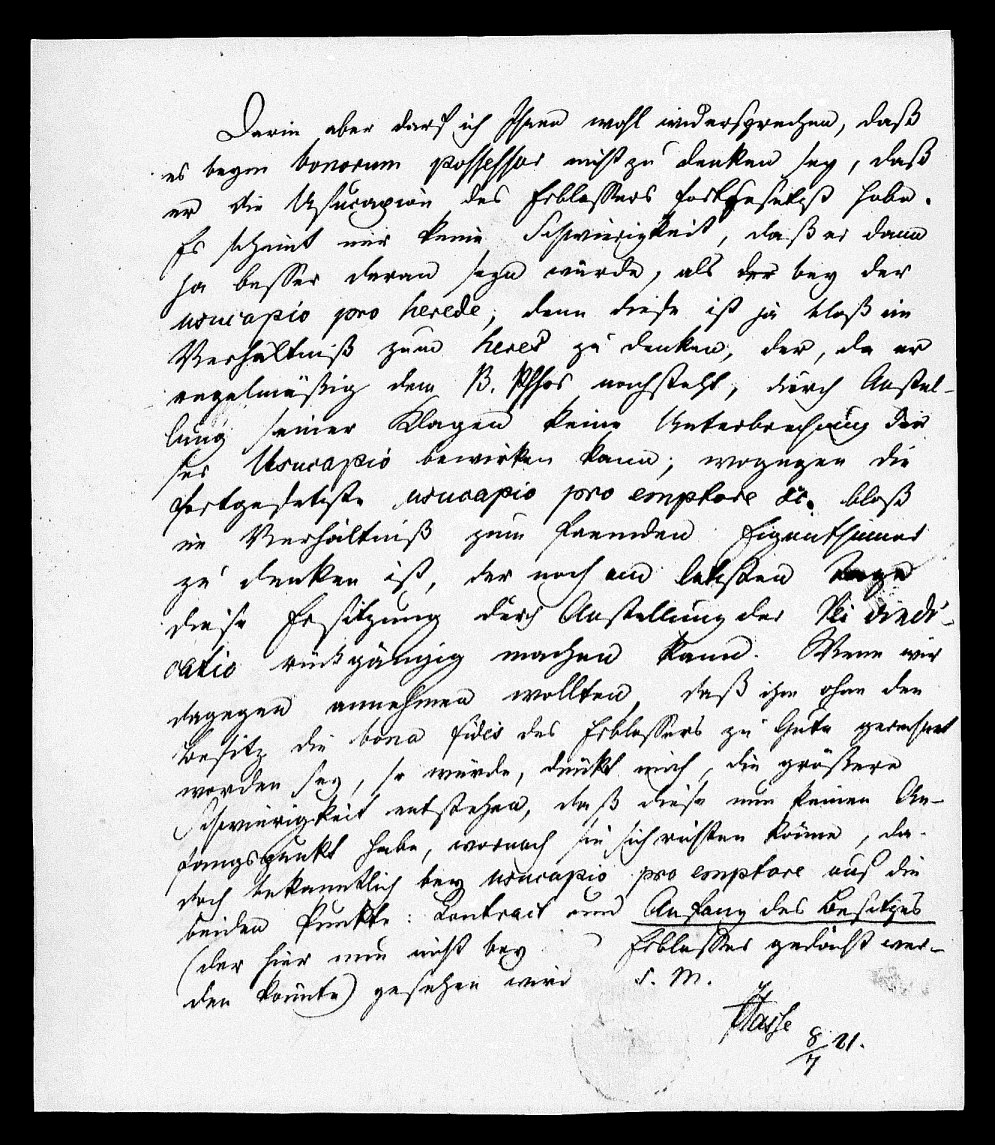 Darin aber darf ich Ihnen wohl widersprechen, daß
es beym bonorum possessor nicht zu denken sey, daß
er die Usucapion des Erblassers fortgesetzt habe.
Es scheint mir keine Schwierigkeit, daß er dann
ja besser daran seyn würde, als der bey der
usucapio pro herede; denn diese ist ja bloß im
Verhältniß zum heres zu denken, der, da er
regelmäßig dem B. Pssor nachsteht, durch Anstel-
lung seiner Klagen keine Unterbrechung die-
ser Usucapio bewirken kann; wogegen die
fortgesetzte usucapio pro emptore &c. bloß
im Verhältniß zum fremden Eigenthümer
zu denken ist, der noch am letzten Tage
diese Ersitzung durch Anstellung der Rei vindi-
catio rückgängig machen kann. Wenn wir
dagegen annehmen wollten, daß ihm ohne den
Besitz die bona fides des Erblassers zu Gute gerechnet
worden sey, so würde, dünkt mich, die größere
Schwierigkeit entstehen, daß diese nun keinen An-
fangspunkt habe, wornach sie sich richten könne, da
doch bekanntlich bey usucapio pro emptore auf die
beiden Punkte: Contract und Anfang des Besitzes
(der hier nun nicht bey Erblasser gedacht wer-
den könnte) gesehen wird S. M.
Hasse
8/7 21.